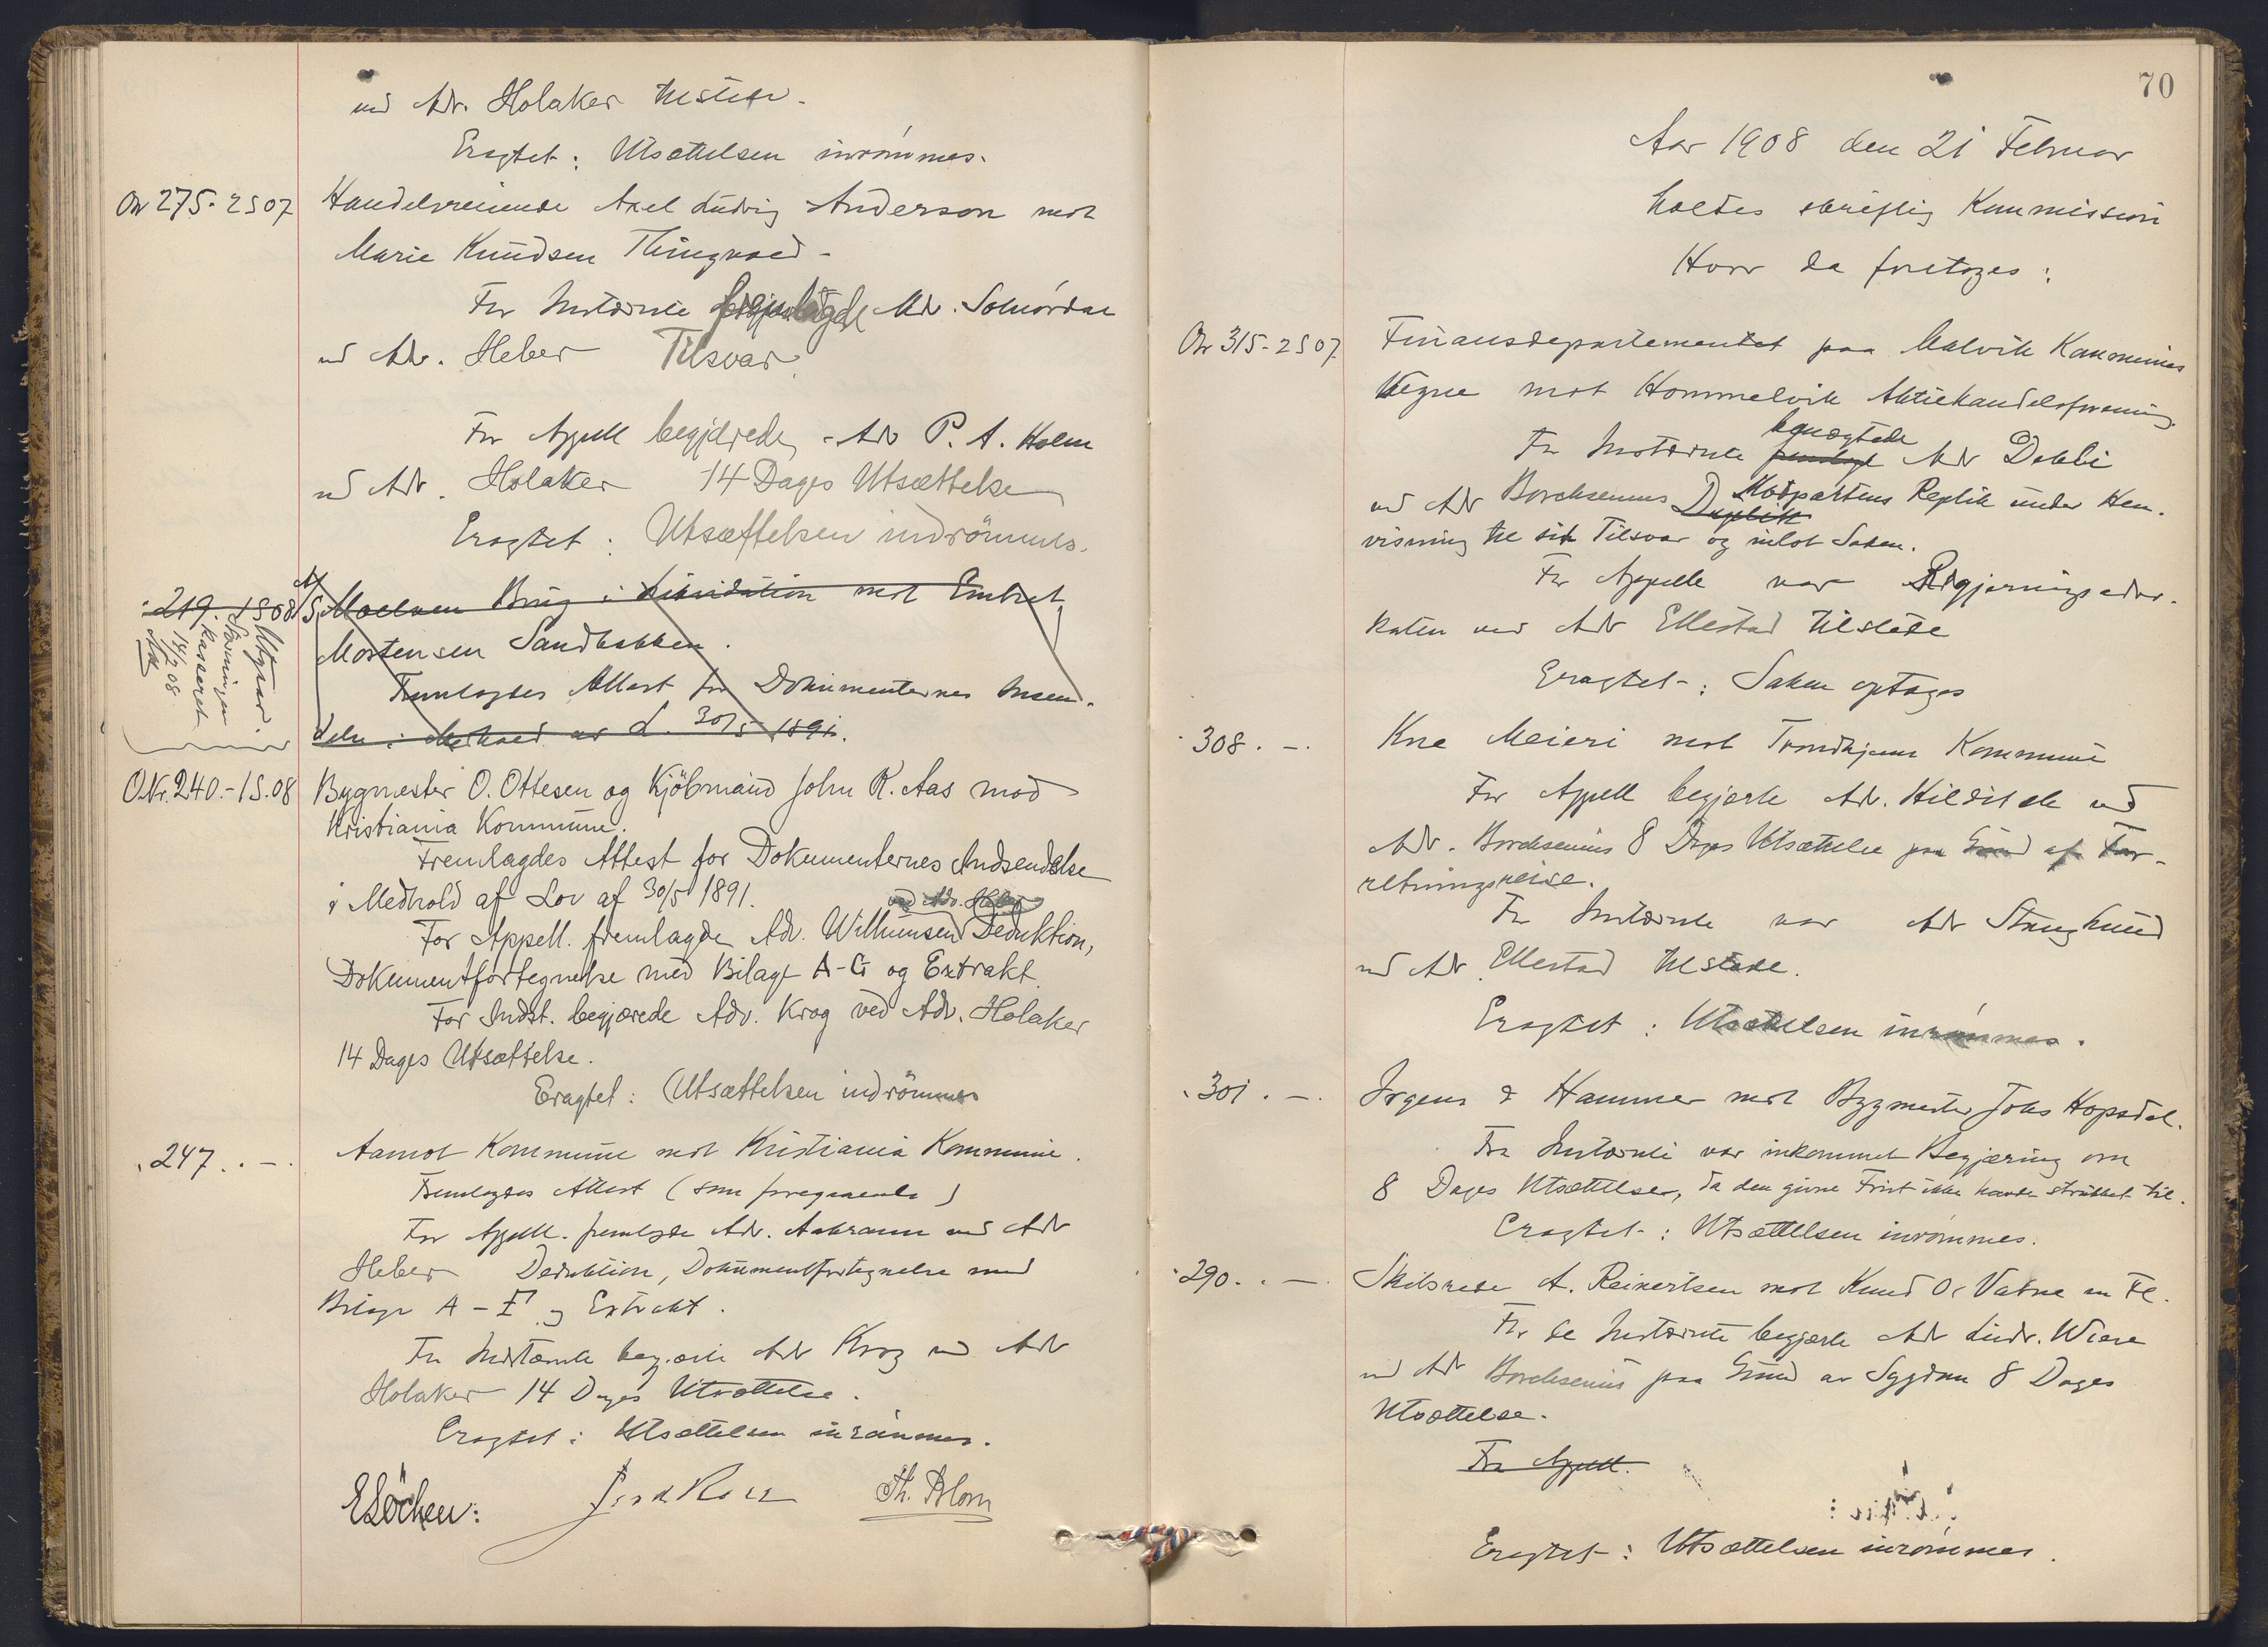 ved Adv. Holaker tilstede.
Eragtet: Utsættelsen inrömmes.
ONr 275-2S07
Handelsreisende Axel Ludvig Anderson mot
Marie Knudsen Thingvold.
For Instævnte Adv. Solnördal
ved Adv. Heber Tilsvar.
For Appell begjærede Adv P. A. Holm
ved Adv. Holaker 14 Dages Utsættelse
Eragtet: Utsættelsen indrömmes.
219. 1S08
Utgaar.
Stevningen
kasseret
14/2 08.
A/S Moelven Brug i Likvidation mot Embret
Mortensen Sandbakken.
Fremlagdes Attest for Dokumenternes Insen-
delse i Medhold av L. 30/5 1891.
O.Nr. 240.-1S.08
Bygmester O. Ottesen og Kjöbmand John R. Aas mod
Kristiania Kommune.
Fremlagdes Attest for Dokumenternes Indsendelse
i Medhold af Lov af 30/5 1891.
ved Adv. Heber
For Appell. fremlagde Adv. Willumsen Deduktion,
Dokumentfortegnelse med Bilage A-G og Extrakt.
For Indst. begjærede Adv. Krog ved Adv. Holaker
14 Dages Utsættelse.
Eragtet: Utsættelsen indrömmes
. 247. . - .
Aamot Kommune mot Kristiania Kommune.
Fremlagdes Attest (som foregaaende)
For Appell. fremlagde Adv. ved Adv
Heber Deduktion, Dokumentfortegnelse med
Bilage A-F og Extrakt.
For Instævnte begjærte Adv Krog ved Adv
Holaker 14 Dages Utsættelse.
Eragtet: Utsættelsen inrömmes.
ELöchen: Th. Blom
70
Aar 1908 den 21 Februar
holdes skriftlig Kommission
Hvor da foretoges:
ONr 315-2S07
Finansdepartementet paa Malvik Kommunes
Vegne mot Hommelvik Aktiehandelsforening.
benægtede
For Instævnte fremlagde Adv Dahl
ved Adv Borchsenius Duplik Motpartens Replik under Hen-
visning til sit Tilsvar og inlot Saken.
For Appelle var Regjeringsadvo-
katen ved Adv Ellestad tilstede
Eragtet: Saken optages
. 308. - .
Kne Meieri mot Trondhjems Kommune
For Appell begjærte Adv. Hilditch ved
Adv. Borchsenius 8 Dages Utsættelse paa Grund af For-
retningsreise.
For Instævnte var Adv Stenglund
ved Adv Ellestad tilstede.
Eragtet: Utsættelsen inrömmes.
. 301. - .
Irgens & Hammer mot Bygmester Johs Hopsdal.
Fra Instævnte var inkommet Begjæring om
8 Dages Utsættelse, da den givne Frist ikke havde strukket til.
Eragtet: Utsættelsen inrömmes.
. 290. . - .
Skibsreder A. Reinertsen mot Knud O. Vatne m Fl.
For de Instævnte begjærte Adv Ludv. Wiese
ved Adv Borchsenius paa Grund av Sygdom 8 Dages
Utsættelse.
For Appell.
Eragtet: Utsættelsen inrömmes.